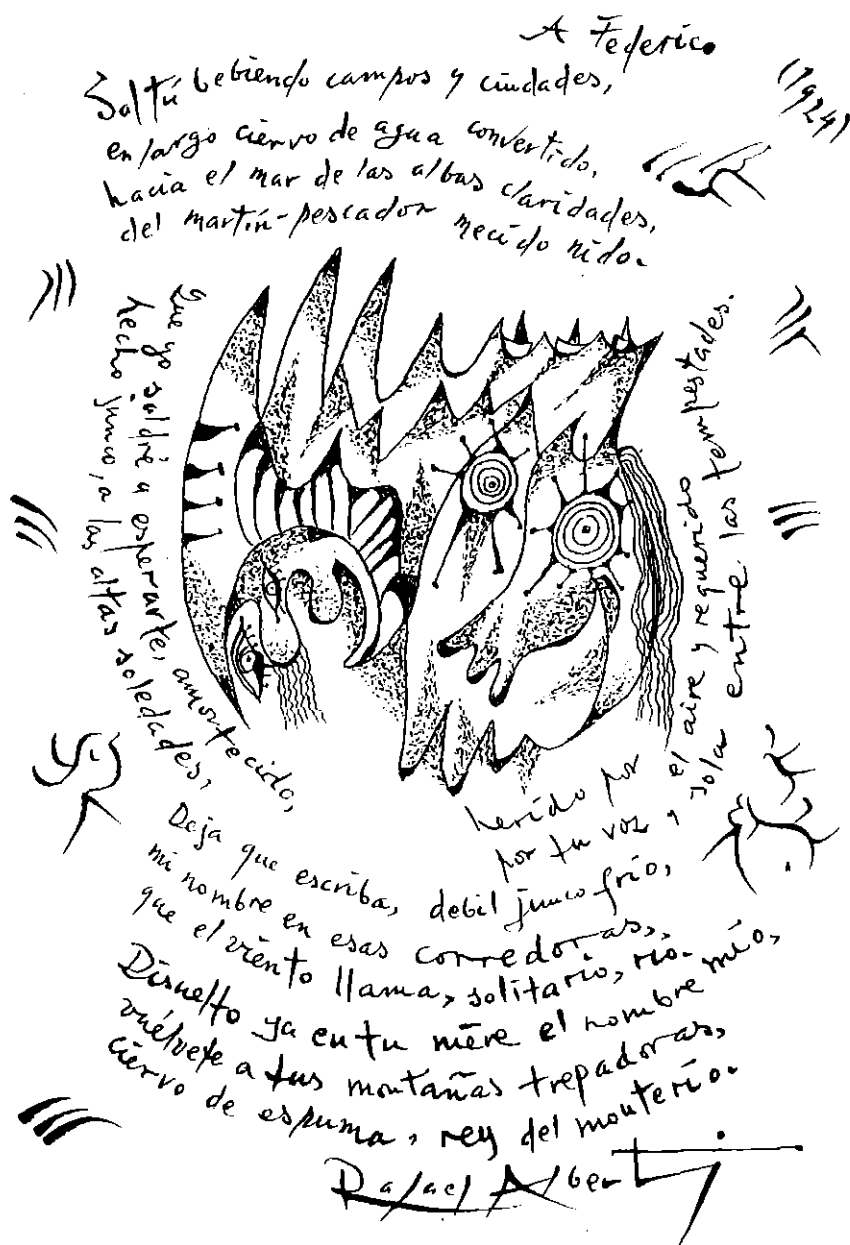 A Federico
(1924)
Sal tú bebiendo campos y ciudades,
en largo ciervo de agua convertido,
hacia el mar de las albas claridades,
del martín-pescador mecido nido.
Que yo saldré a esperarte, amortecido,
hecho junco, a las altas soledades,
herido por el aire y requerido
por tu voz, sola entre las tempestades.
Deja que escriba, debil junco frío,
mi nombre en esas corredoras,
que el viento llama, solitario, río.
Disuelto ya en tu nieve el nombre mío,
vuélvete a tus montañas trepadoras,
ciervo de espuma, rey del monterío.
Rafael Alberti